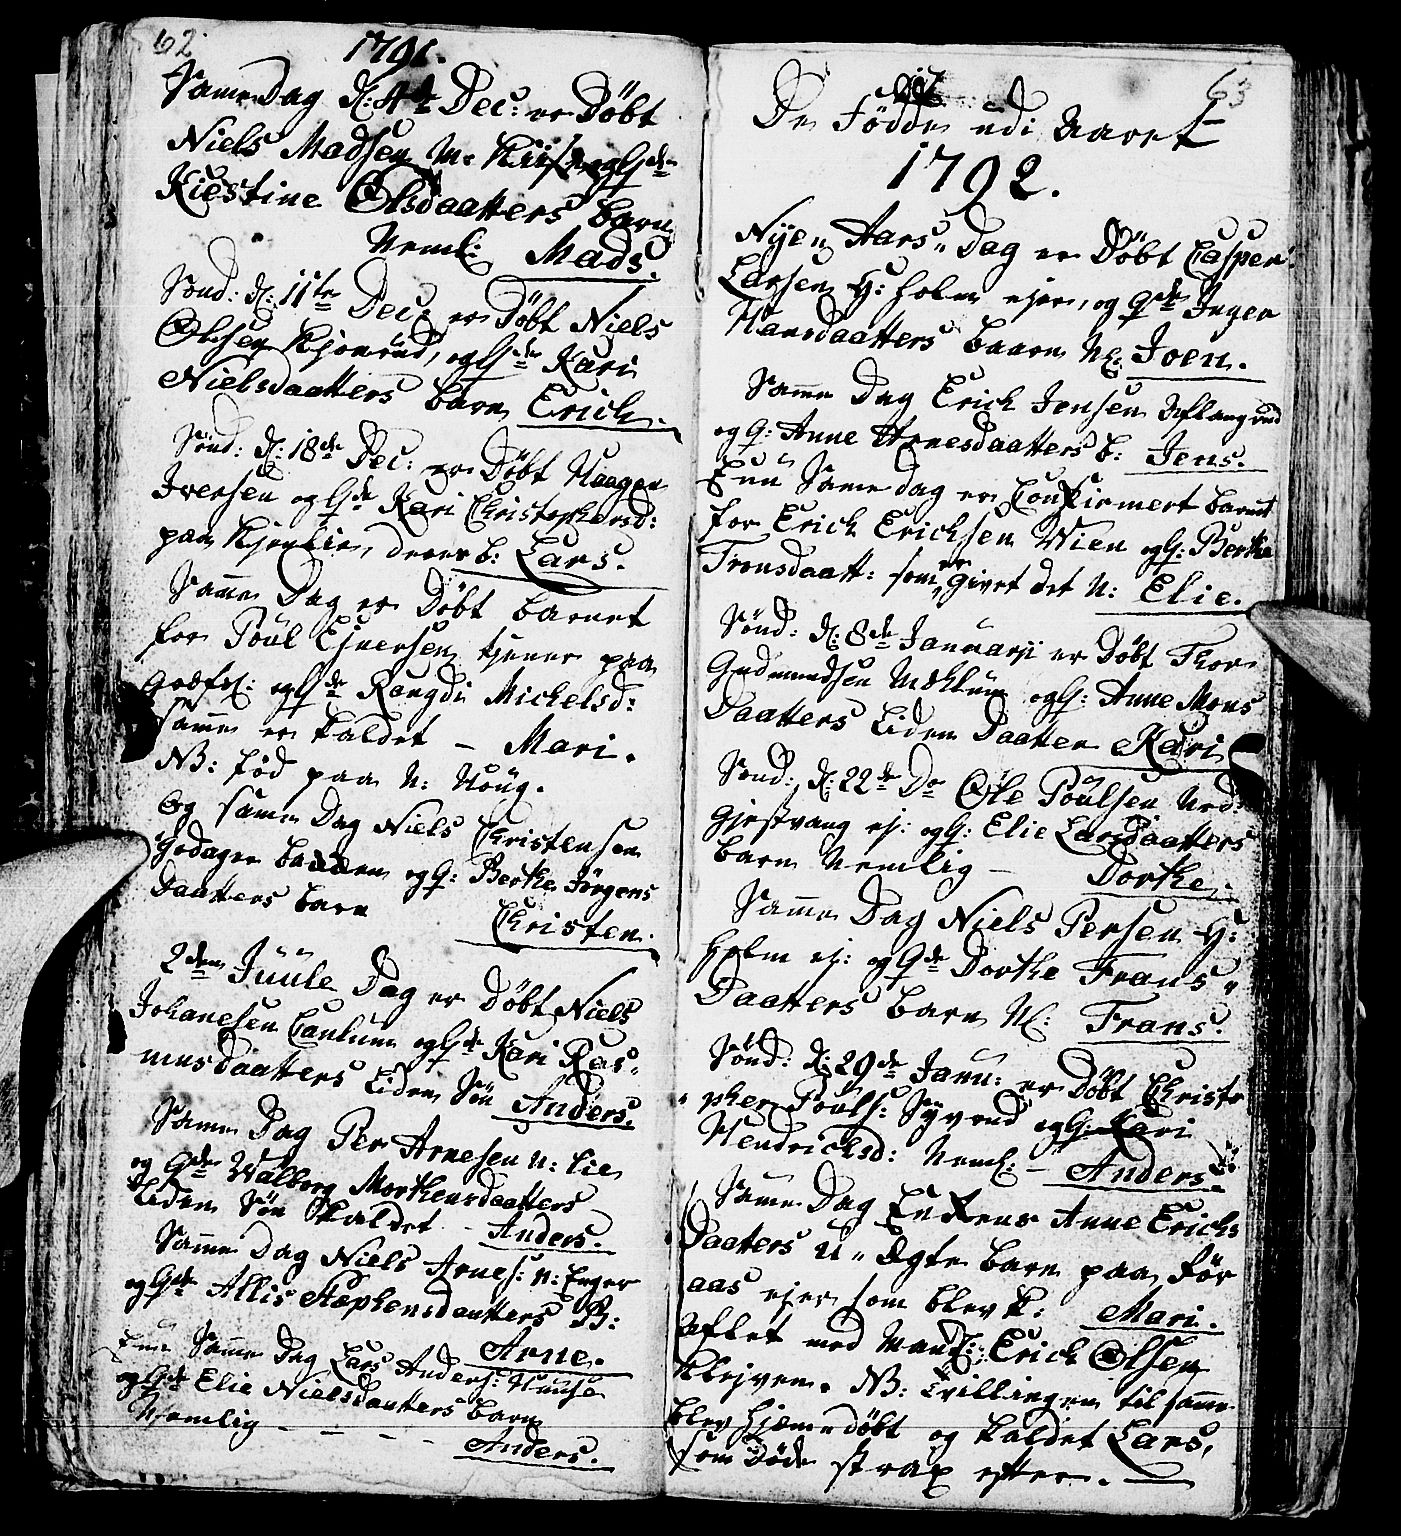 62
1791.
Samme Dag d: 4de Dec: er Døbt
Niels Madsen og Gde
Kiestine Olsdaatters barn
Neml: Mads.
Sønd: d: 11te Dec: er Døbt Niels
Olsen Kjonrud, og Gde Kari
Nielsdaatters barn Erich.
Sønd: d: 18de Dec: er Døbt Haagen
Iversen og Gde Kari Christophersd:
paa deres b: Lars.
Samme Dag er Døbt barnet
for Poul Ejversen tjener paa
og Gde Rangdi Michelsd:
samme er kaldet - Mari.
NB: fød paa N: Houg.
Og samme Dag Niels Christensen
Godager og G: Berthe Jørgens
Daatters barn Christen.
2den Juule Dag er Døbt Niels
Johanesen og Gde Kari Ras-
musdaatters liden Søn Anders.
Samme Dag Per Arnesen N: Lie
og Gde Walborg Morthensdaatters
liden Søn kaldet - Anders.
Samme Dag Niels Arnes: N: Enger
og Gde Allis Stephensdaatters B:
Arne.
Enu Samme Dag Lars Anders:
og Gde Elie Nielsdaatters barn
Nemlig - - - - Anders.
63
De Fødde udi Aaret
1792.
Nyen Aars Dag er Døbt Casper
Larsen H: holm ejer, og Gde Inger
Hansdaatters baarn N: Joen.
Samme Dag Erich Jensen
og G: Anne Arnesdaatters b: Jens.
Enu Samme dag er Confirmert barnet
for Erich Erichsen Wien og G: Berthe
Tronsdaatt: som er givet det N: Elie.
Sønd: d: 8de Januarij er Døbt Thor
Gudmundsen og G: Anne Mons
Daatters liden Daatter Kari
Sønd: d: 22de Do Ole Poulsen Ned:
Gjestvang ej: og G: Elie Larsdaatters
barn Nemlig - Dorthe.
Samme Dag Niels Persen H:
holm ej: og Gde Dorthe Frans
Daatters barn N: Frans.
Sønd: d: 29de Janu: er Døbt Christo
pher Pouls: Syverud og G: Kari
Hendrichsd: Neml: - Anders.
Samme Dag Anne Erichs
Daatters U-ægte barn paa Før
aas ejer som blev k: Mari.
Aflet med Erich Olsen
Klejven. NB: Tvillingen til samme
blev hjemedøbt og kaldet Lars,
som Døde strax efter.